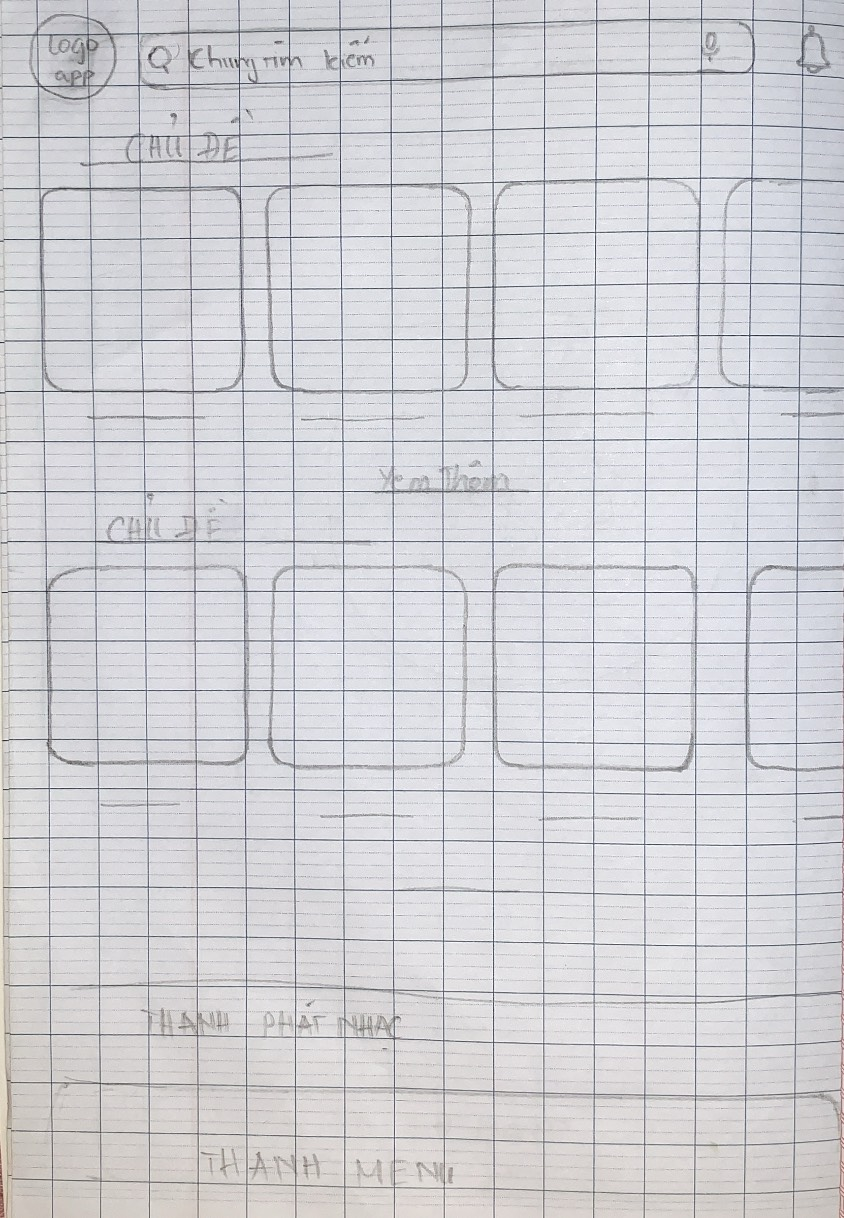 Logo
app
Khung tìm kiếm
CHỦ ĐỀ
Xem Thêm
CHỦ ĐỀ
THANH PHÁT NHẠC
THANH MENU